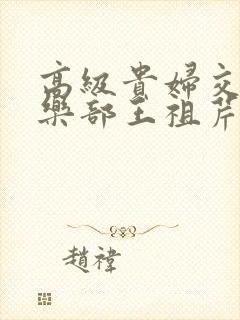 高級貴婦交
樂部王祖芹
趙禕